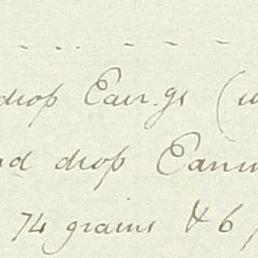 drop Ear.gs (
drop Earri
74 grains & 6